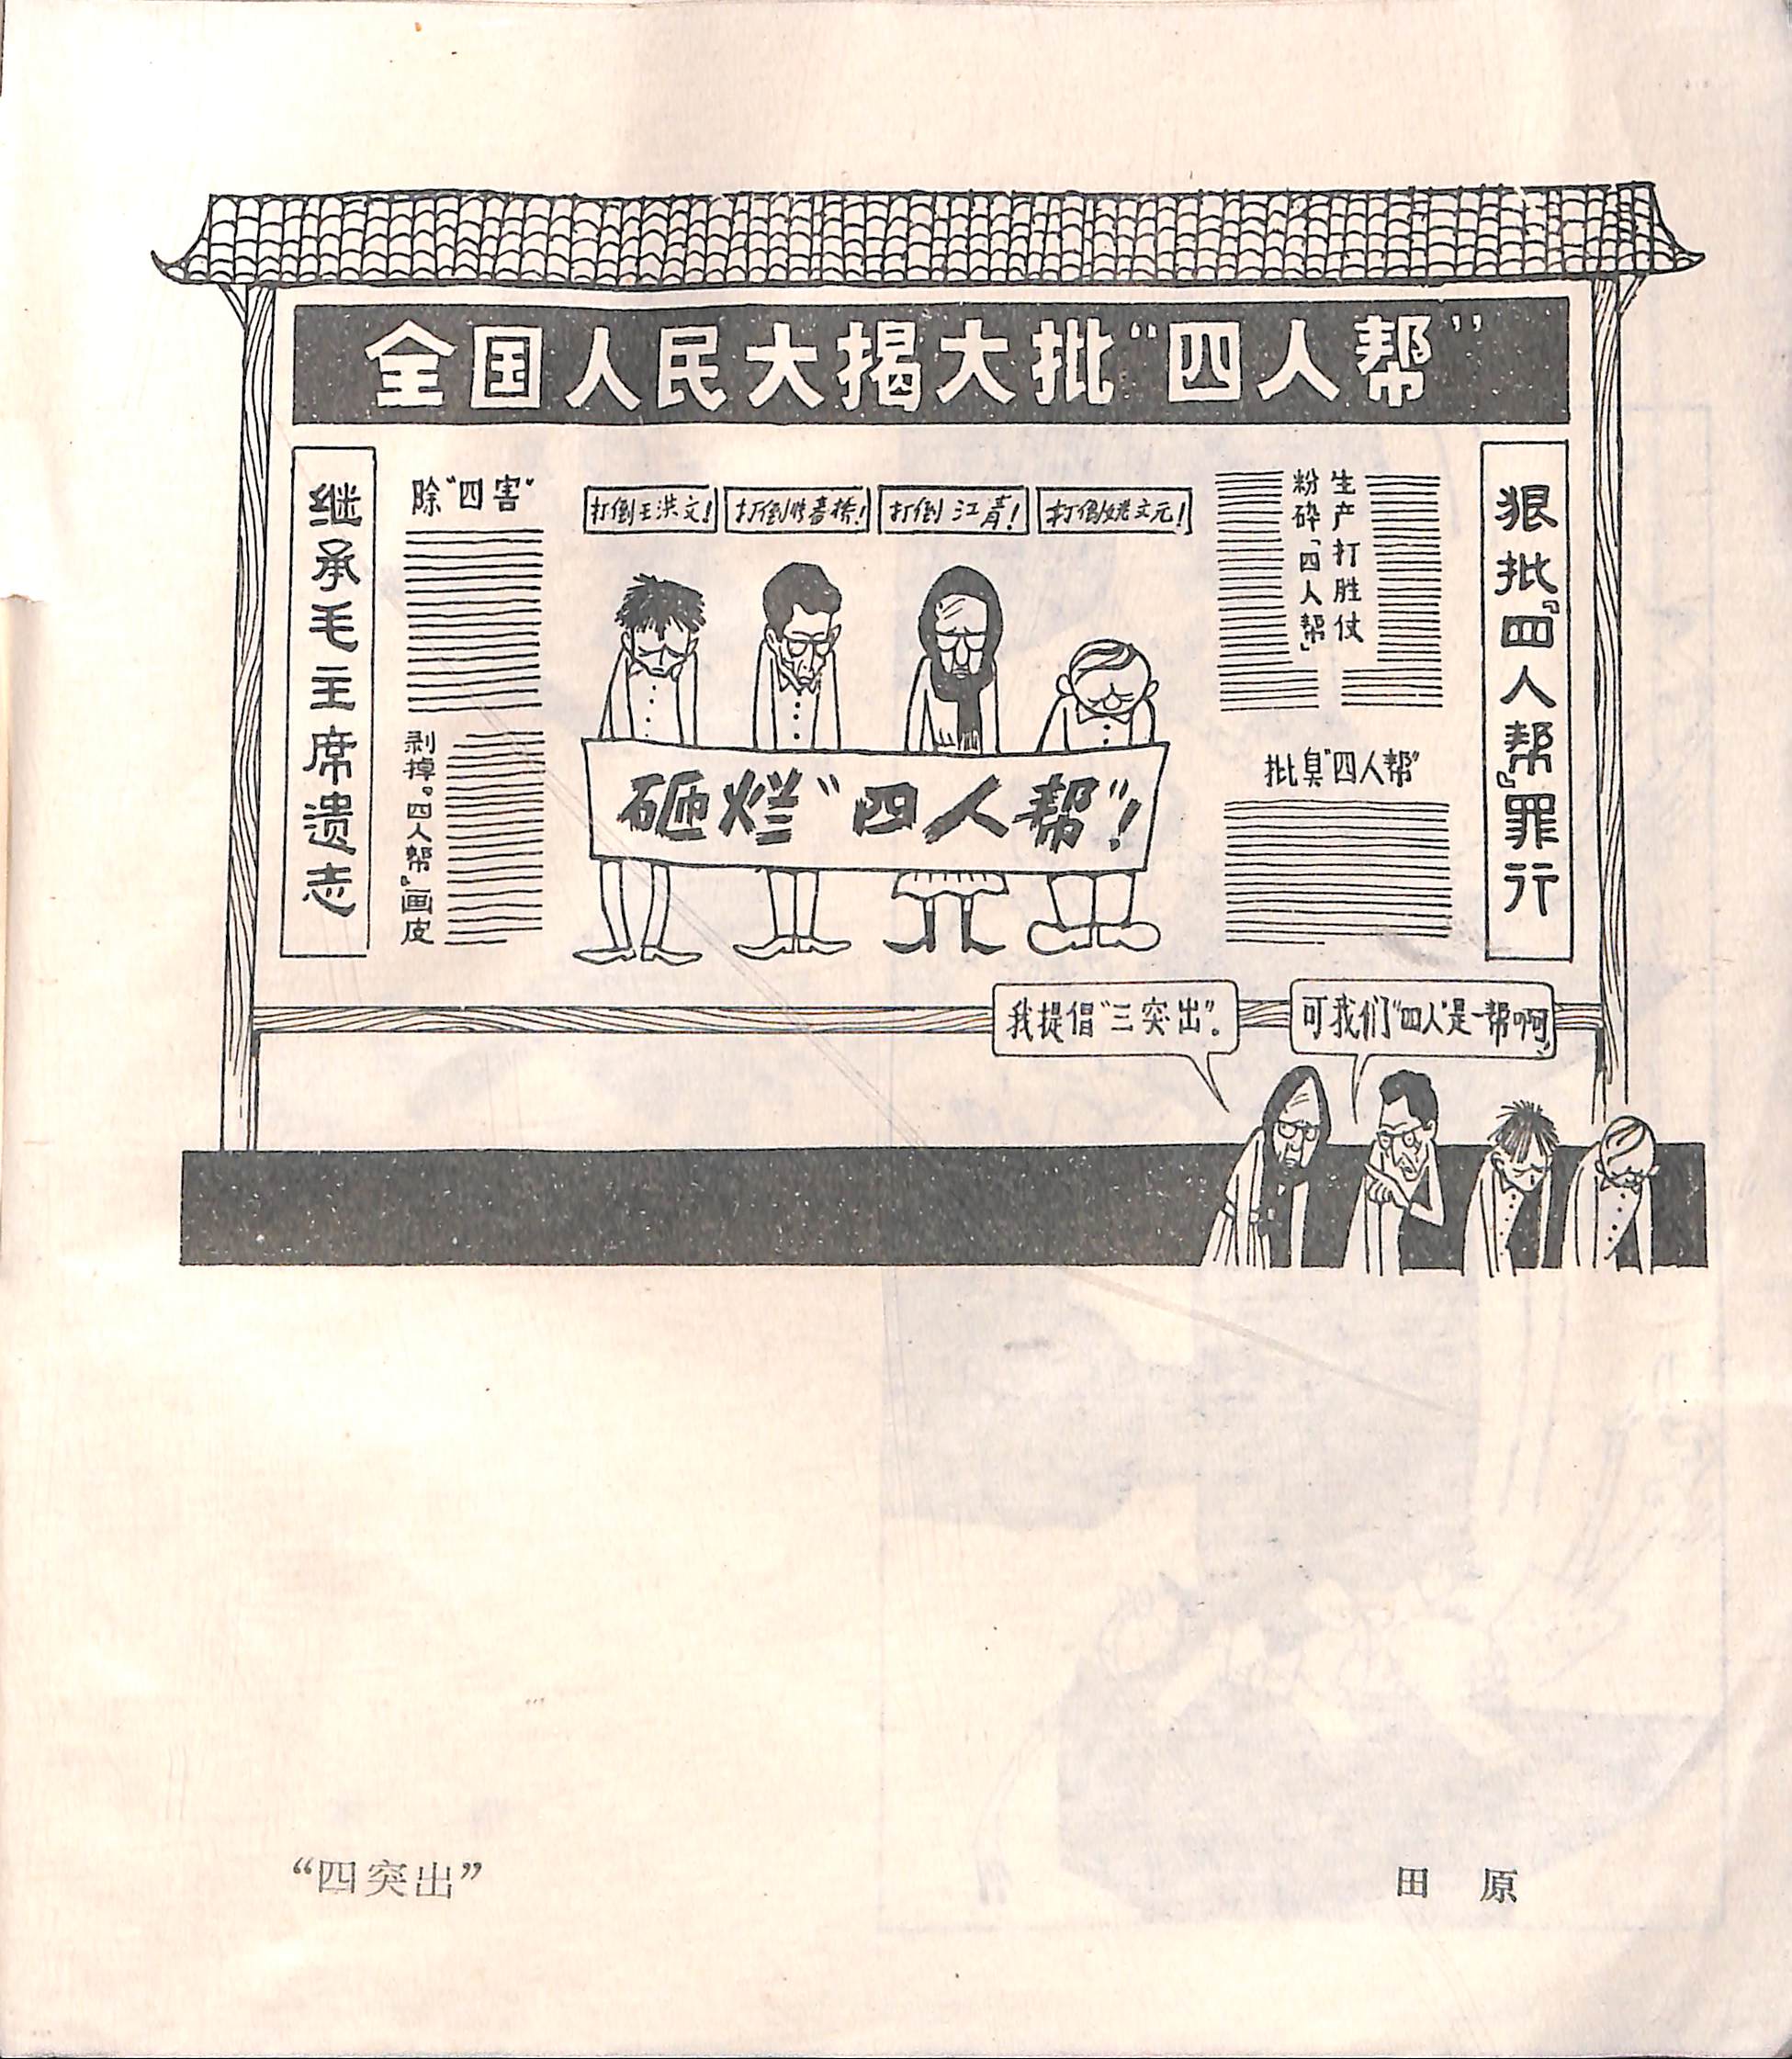 全国人民大揭大批“四人帮”
继承毛主席遗志
除“四害”
剥掉“四人帮”画皮
打倒王洪文!
打倒张春桥!
打倒江青!
打倒姚文元!
砸烂“四人帮”!
生产打胜仗
粉碎「四人帮」
批臭“四人帮”
狠批『四人帮』罪行
我提倡“三突出”。
可我们“四人”是一帮啊!
“四突出”
田 原